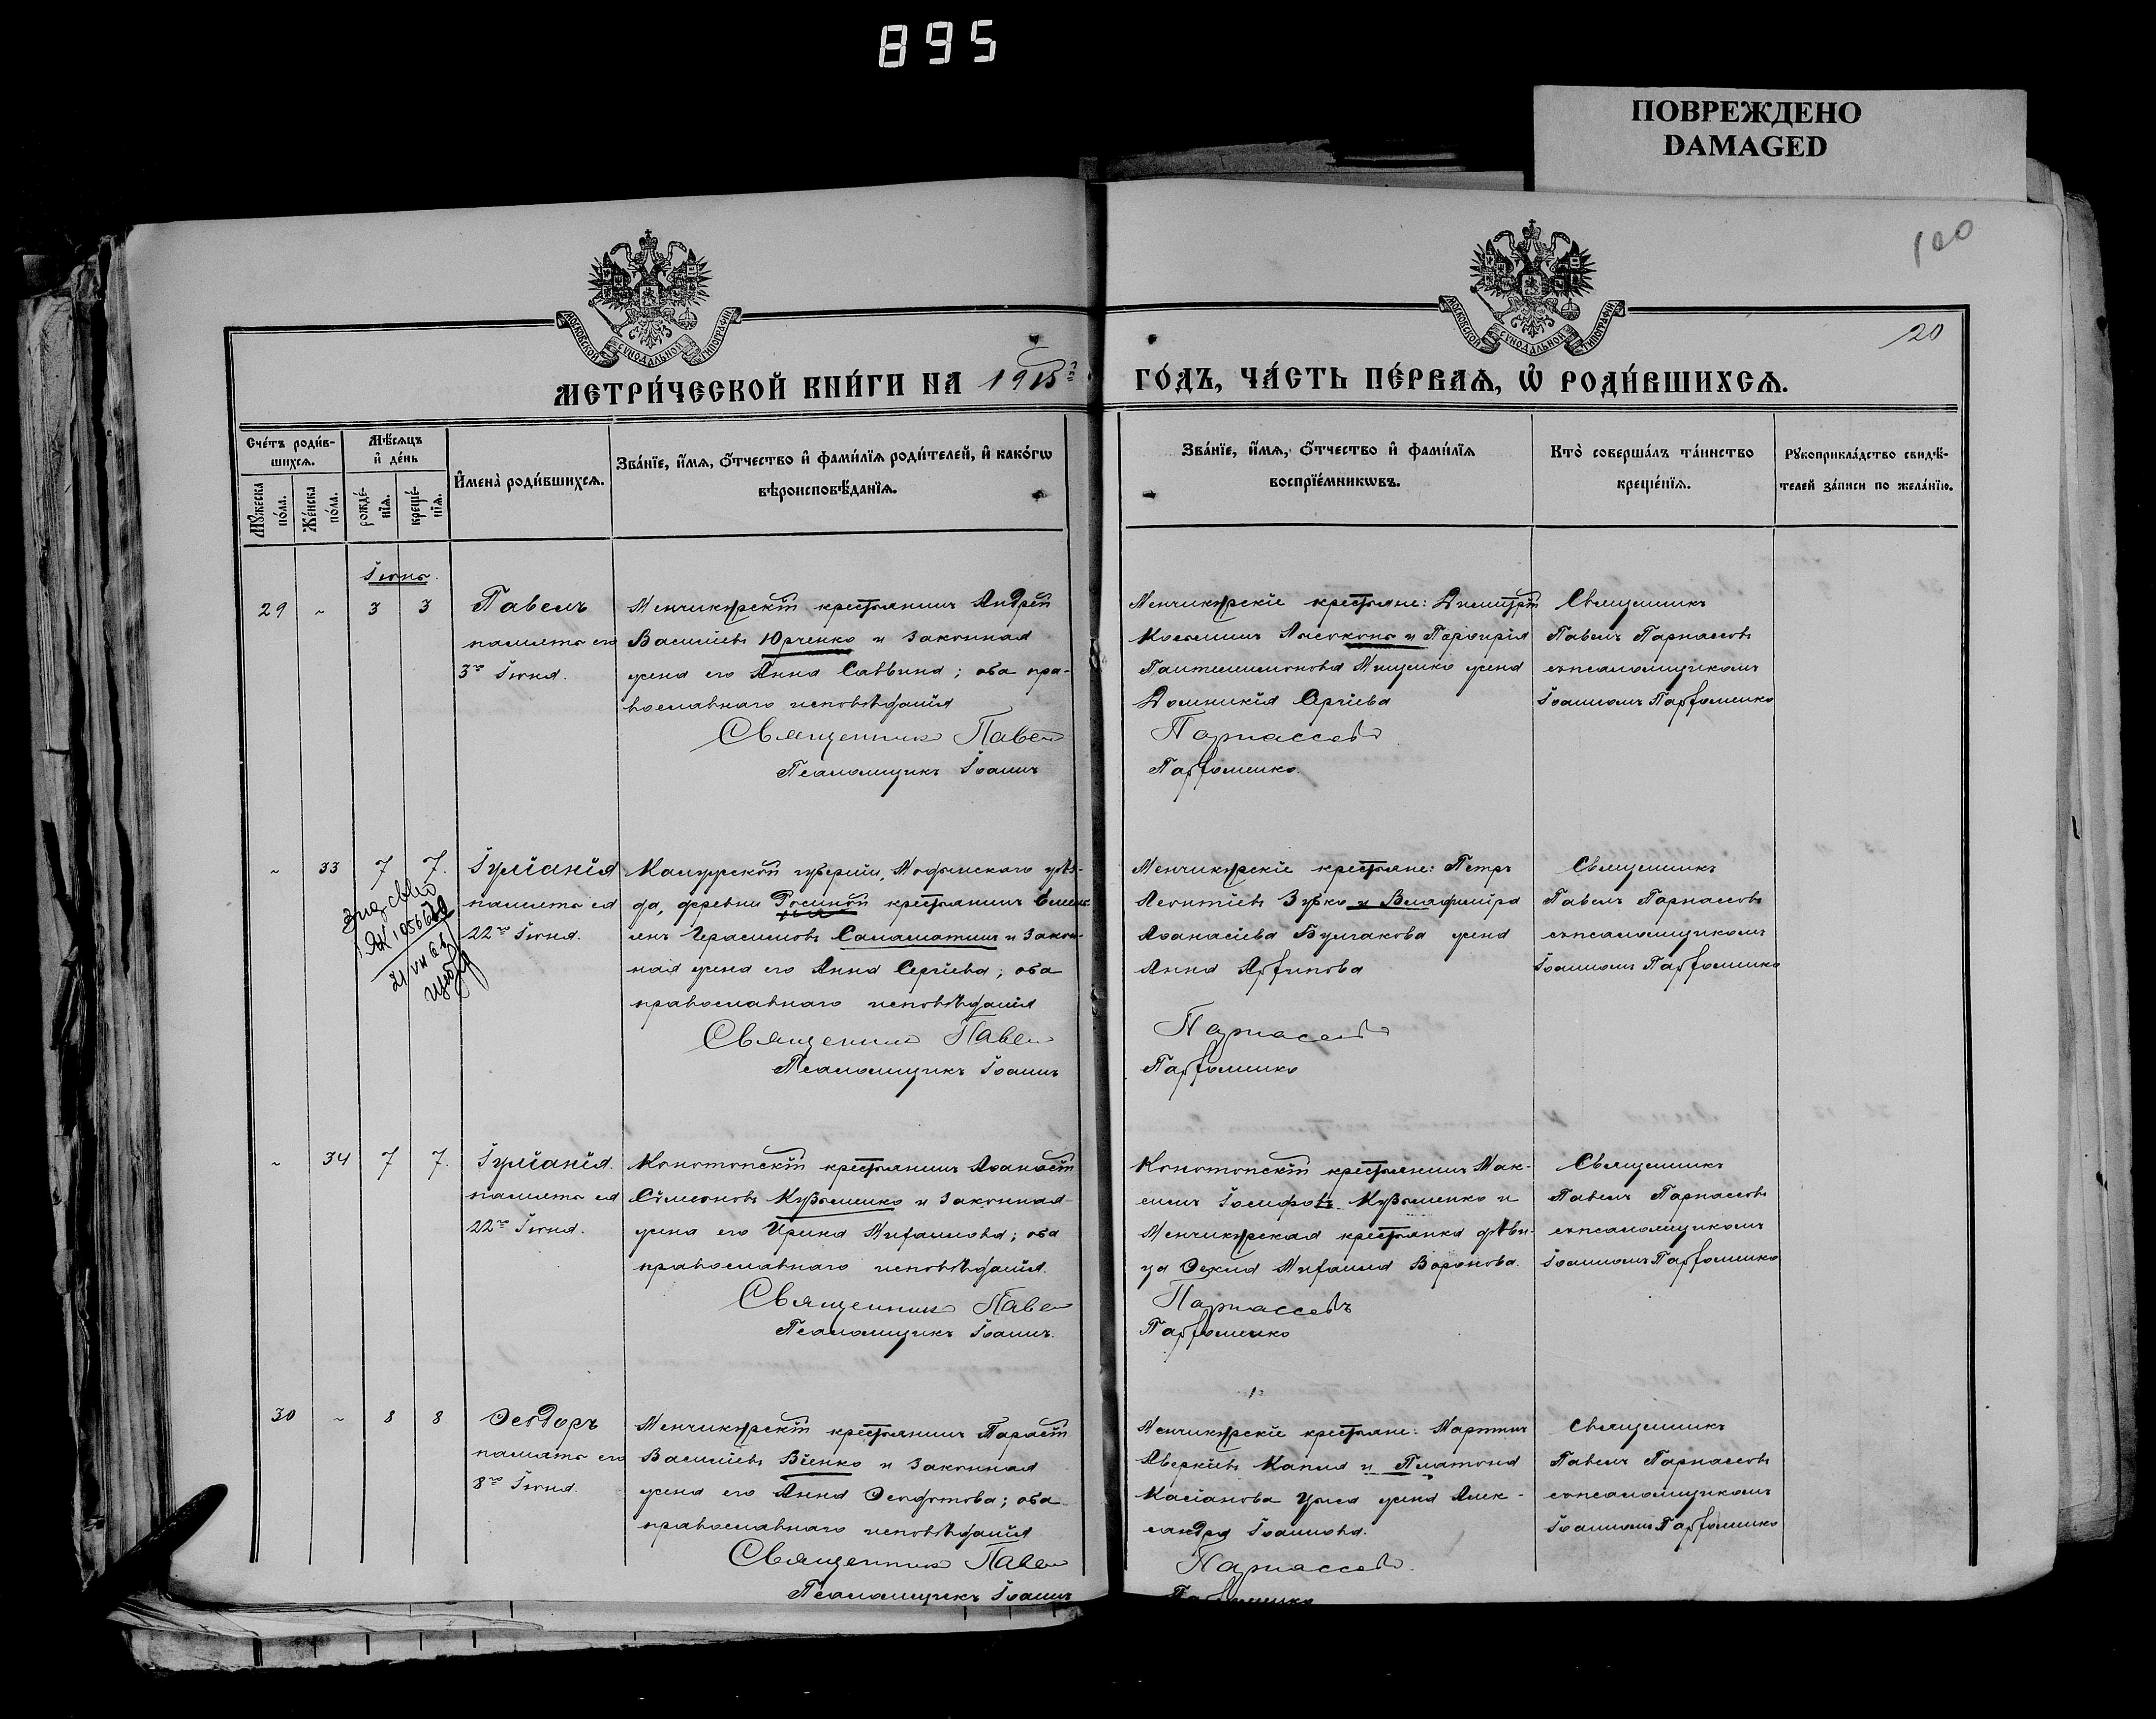 895
ПОВРЕЖДЕНО
DAMAGED
100
20
МОСКОВСКОЙ СѴНОДАЛЬНОЙ ТИПОГРАФІИ
МОСКОВСКОЙ СѴНОДАЛЬНОЙ ТИПОГРАФІИ
МЕТРИ́ЧЕСКОЙ КНИ́ГИ НА 1915 ГО́ДЪ, ЧА́СТЬ ПЕ́РВАѦ, Ѡ РОДИ́ВШИХСѦ.
Сче́тъ роди́в-
шихсѧ.
Мꙋ́жеска по́ла.
Же́нска по́ла.
Мѣ́сѧцъ
и҆ де́нь
рожде́-
нїѧ.
креще́-
нїѧ.
И҆мена̀ роди́вшихсѧ.
Зва́нїе, и҆́мѧ, ѻ҆́тчество и҆ фами́лїѧ роди́телей, и҆ како́гѡ
вѣроисповѣ́данїѧ.
Зва́нїе, и҆́мѧ, ѻ҆́тчество и҆ фами́лїѧ
воспрїе́мникѡвъ.
Кто̀ соверша́лъ та́инство
креще́нїѧ.
Рꙋкоприкла́дство свидѣ́-
телей за́писи по жела́нїю.
Іюнь.
29 ~ 3 3
Павелъ
память его
3го Іюня.
Менчикурскій крестьянинъ Андрей
Василіевъ Юрченко и законная
жена его Анна Саввина; оба пра-
вославнаго исповѣданія
Священникъ Павел
Псаломщикъ Іоаннъ
Менчикурскіе крестьяне: Димитрій
Косьминъ Лисоконь и Порфирія
Пантелеимонова Мищенко жена
Домникія Сергіева
Парнассовъ
Парфоменко.
Священникъ
Павелъ Парнассовъ
съ псаломщикомъ
Іоанномъ Парфоменко
~ 33 7 7.
Іуліанія
память ея
22го Іюня.
21 VII 61
Калужской губерніи, Мосальскаго уѣз-
да, деревни Росинкой крестьянинъ
Герасимовъ Саламатинъ и закон-
ная жена его Анна Сергіева; оба
православнаго исповѣданія
Священникъ Павел
Псаломщикъ Іоаннъ
Менчикурскіе крестьяне: Петръ
Леонтіевъ Зубко и Владиміра
Аѳанасіева Булгакова жена
Анна Архипова
Парнассовъ
Парфоменко
Священникъ
Павелъ Парнассовъ
съ псаломщикомъ
Іоанномъ Парфоменко
~ 34 7 7.
Іуліанія.
память ея
22го Іюня.
Конотопскій крестьянинъ Аѳанасій
Сѵмеоновъ Кузьменко и законная
жена его Ирина Михаилова; оба
православнаго исповѣданія.
Священникъ Павел
Псаломщикъ Іоаннъ.
Конотопскій крестьянинъ Мак-
симъ Іосифовъ Кузьменко и
Менчикурская крестьянка дѣви-
ца Ѳекла Михаила Воронова.
Парнассовъ
Парфоменко
Священникъ
Павелъ Парнассовъ
съ псаломщикомъ
Іоанномъ Парфоменко
30 ~ 8 8
Ѳеодоръ
память его
8го Іюня.
Менчикурскій крестьянинъ Тарасій
Василіевъ Віенко и законная
жена его Анна Ѳеодотова; оба
православнаго исповѣданія
Священникъ Павел
Псаломщикъ Іоаннъ
Менчикурскіе крестьяне: Мартинъ
Аверкіевъ Капля и Платона
Касіанова жена Алек-
сандра Іоаннова.
Парнассовъ.
Парфоменко
Священникъ
Павелъ Парнассовъ
съ псаломщикомъ
Іоанномъ Парфоменко